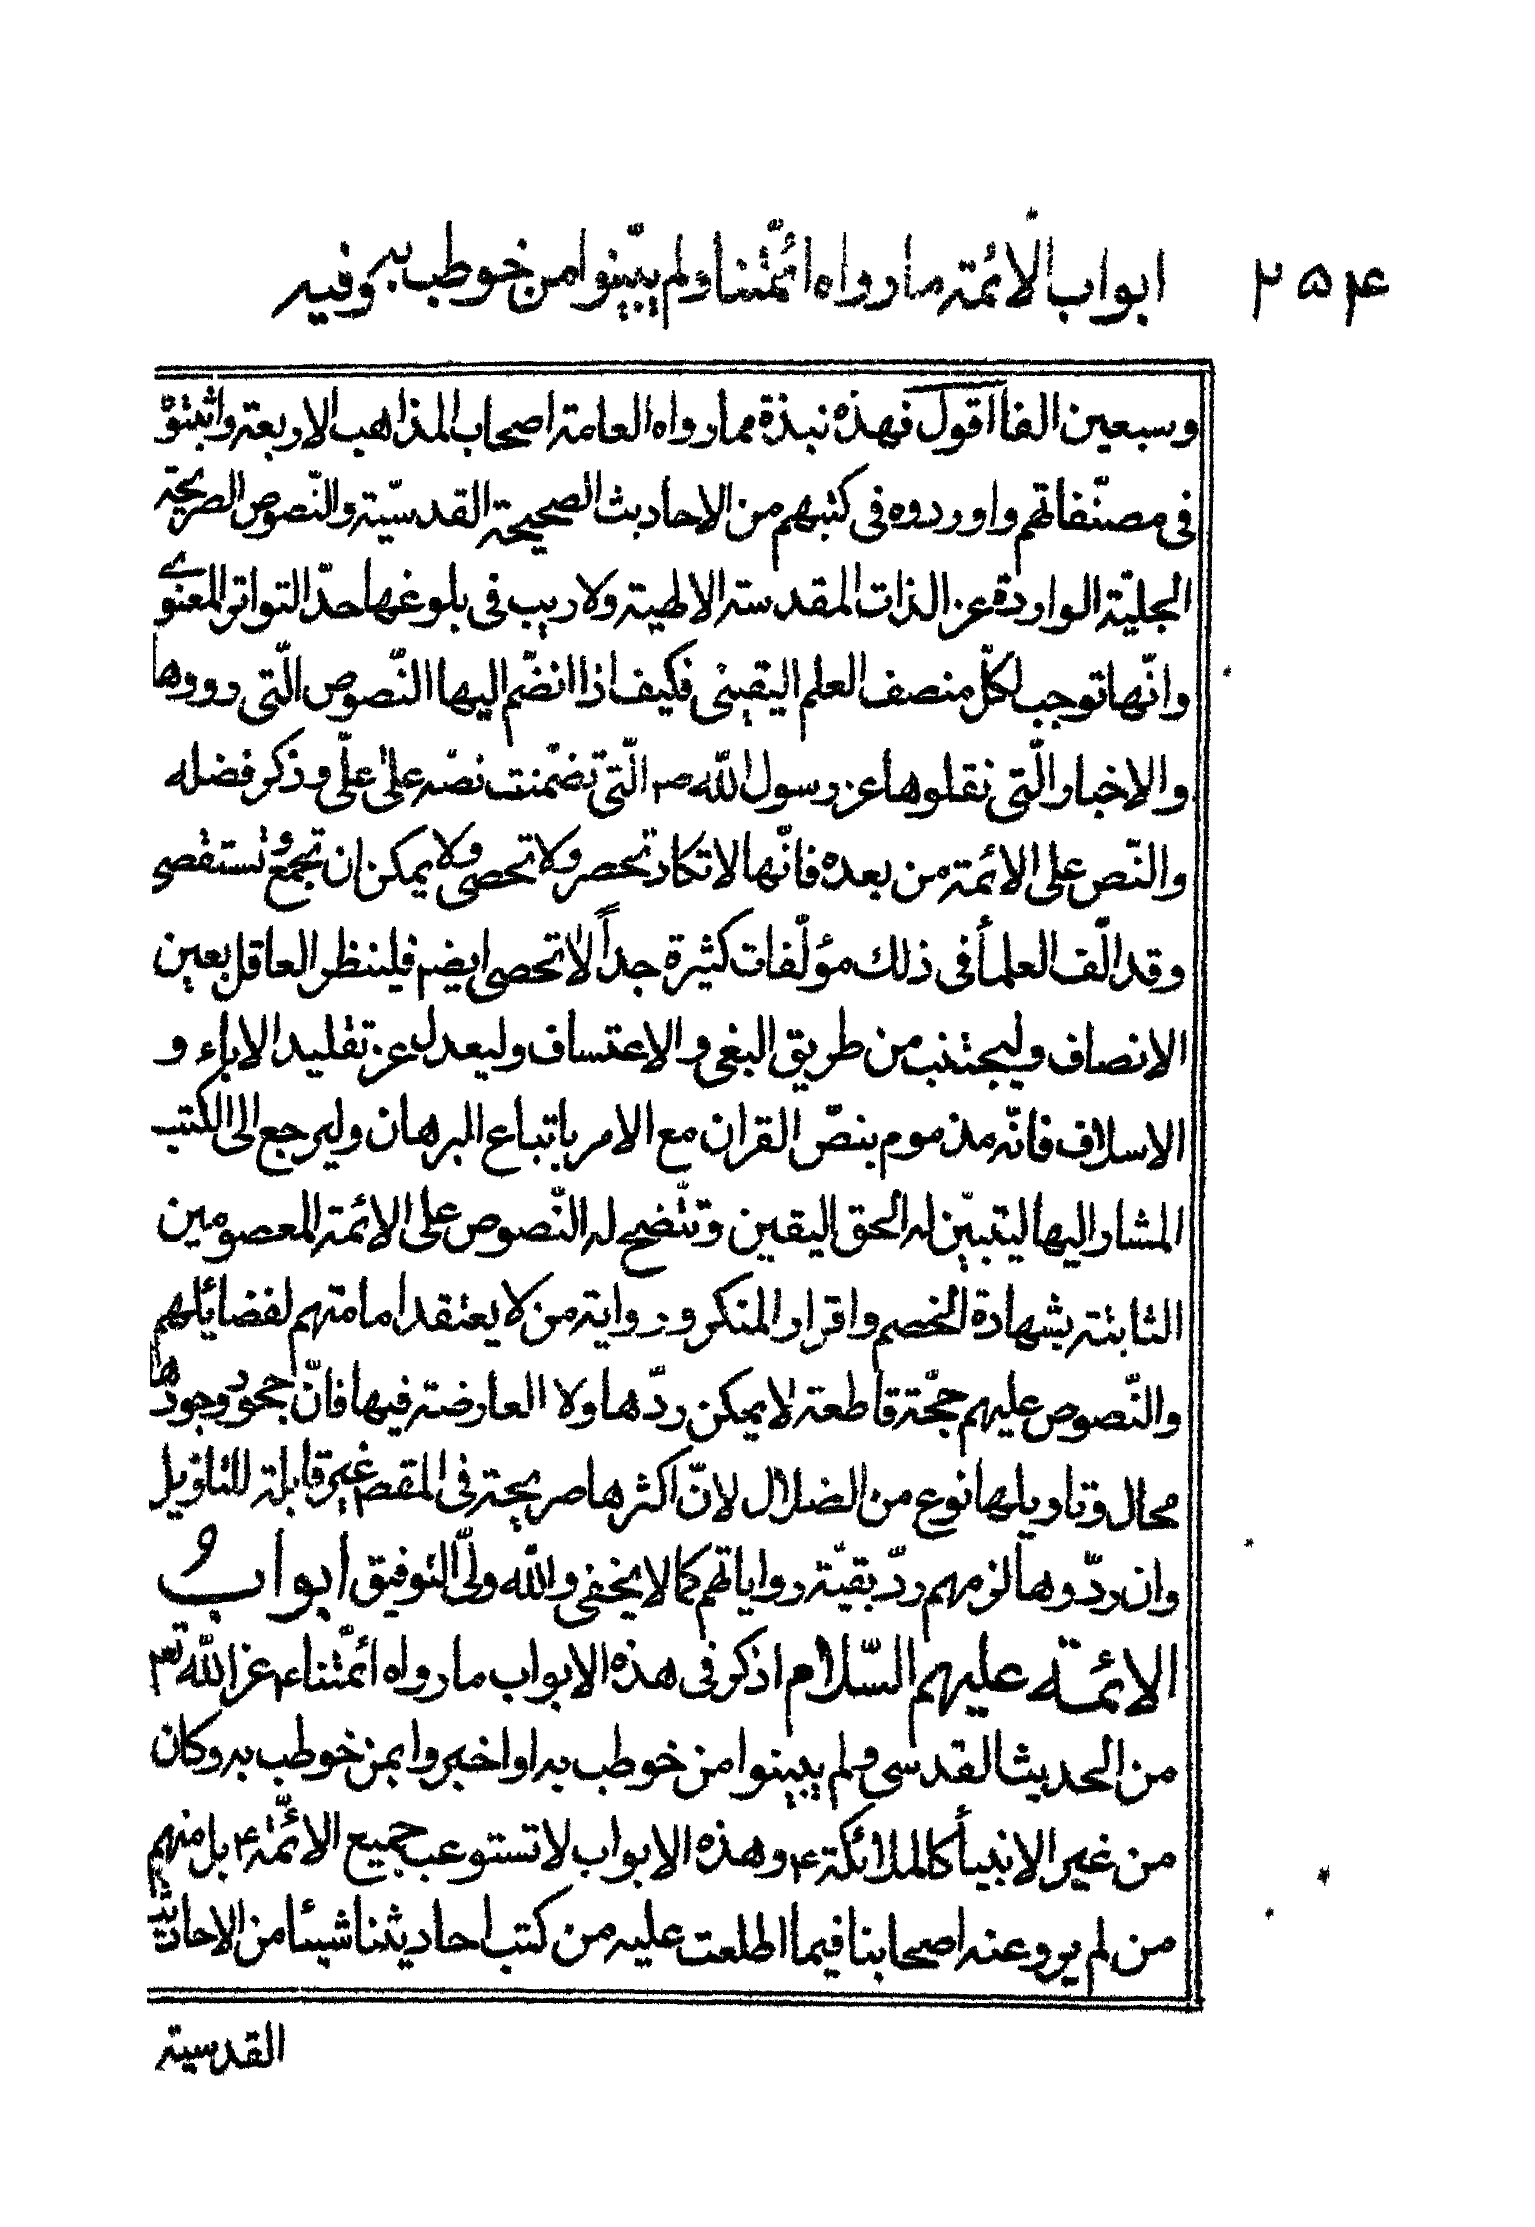 ٢٥۴ ابواب الائمّة ما رواه ائمّتنا ولم يبيّنوا من خوطب به وفيه
وسبعين الفا اقول فهذه نبذة مما رواه العامة اصحاب المذاهب الاربعة واثبتوه
فى مصنّفاتهم واوردوه فى كتبهم من الاحاديث الصحيحة القدسيّة والنّصوص الصريحة
الجليّة الواردة عن الذات المقدسة الالهية ولا ريب فى بلوغها حدّ التواتر المعنوى
وانّها توجب لكلّ منصف العلم اليقينى فكيف اذا انضّم اليها النّصوص الّتى رووها
والاخبار الّتى نقلوها عن رسول اللّه ص الّتى تضمّنت نصّه على علّى وذكر فضله
والنّص على الائمة من بعده فانّها لا تكاد تحصر ولا تحصى ولا يمكن ان تجمع وتستقصى
وقد الّف العلمأ فى ذلك مؤلّفات كثيرة جداً لا تحصى ايضم فلينظر العاقل بعين
الانصاف وليجتنب من طريق البغى والاعتساف وليعدل عن تقليد الاباء و
الاسلاف فانّه مذموم بنصّ القران مع الامر باتباع البرهان وليرجع الى الكتب
المشار اليها ليتبيّن له الحق اليقين وتتّضح له النّصوص على الائمة المعصومين
الثابتة بشهادة الخصم واقرار المنكر ورواية من لا يعتقد امامتهم لفضايلهم
والنّصوص عليهم حجّة قاطعة لا يمكن ردّها ولا العارضة فيها فانّ جحود وجودها
محال وتاويلها نوع من الضلال لانّ اكثرها صريحة فى المقص غير قابلة للتاويل
وان ردّوها لزمهم ردّ بقيّة رواياتهم كما لا يخفى واللّه ولّى التوفيق ابواب
الائمّة عليهم السّلام اذكر فى هذه الابواب ما رواه ائمّتنا ع عن اللّه تع
من الحديث القدسى ولم يبينوا من خوطب به او اخبروا بمن خوطب به وكان
من غير الانبيأ كالملائكة ع وهذه الابواب لا تستوعب جميع الائمّة ع بل منهم
من لم يرو عنه اصحابنا فيما اطلعت عليه من كتب احاديثنا شيئا من الاحاديث
القدسية